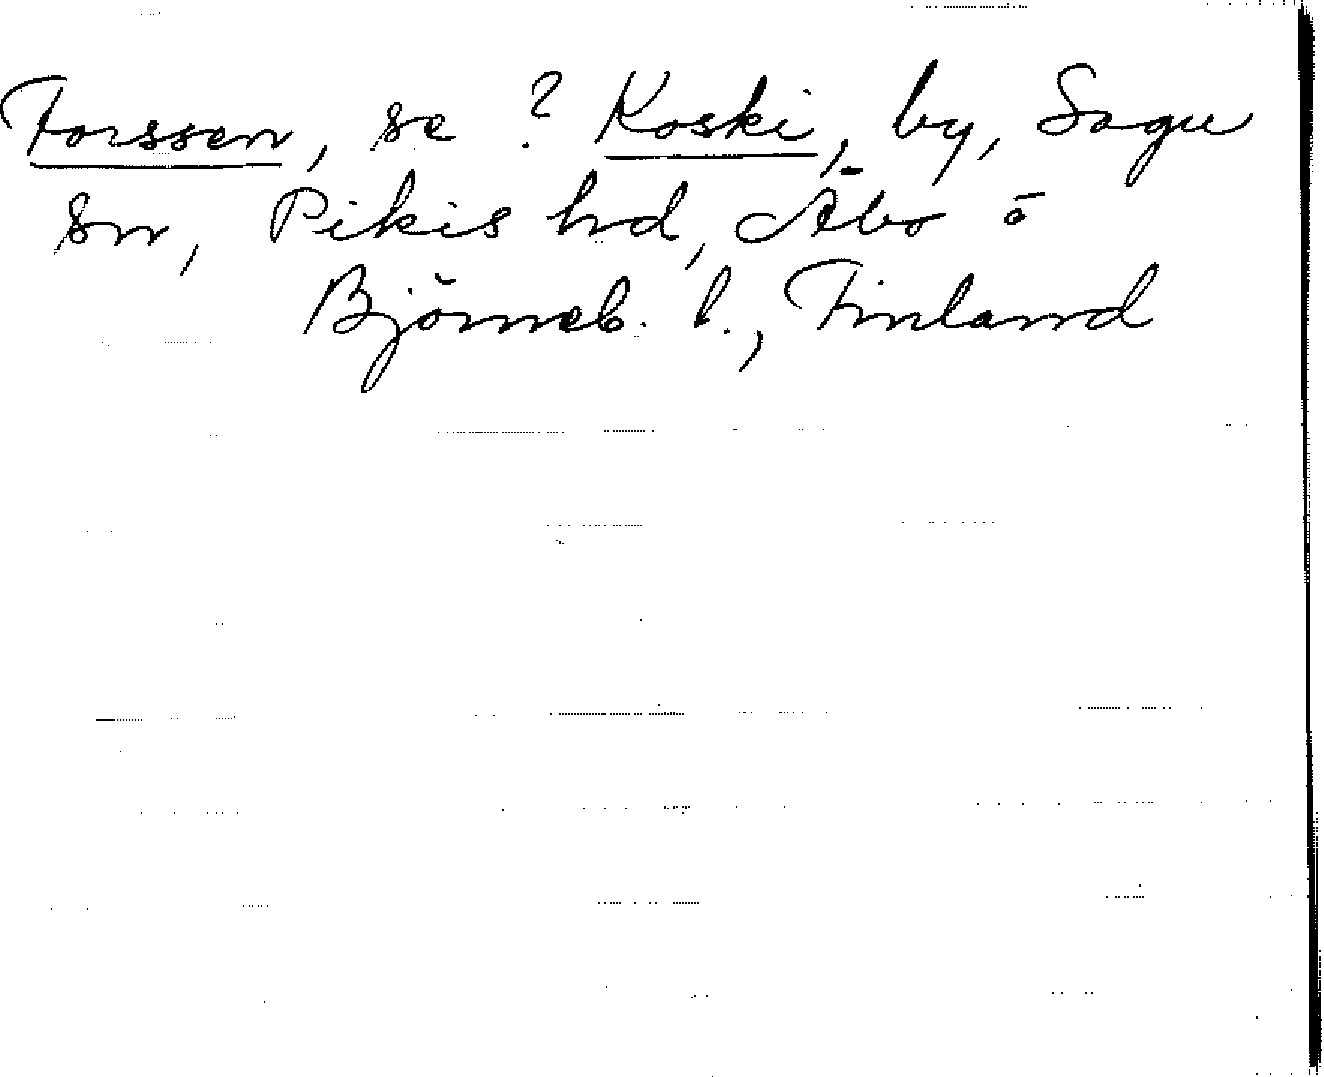 Forssen, se ? Koski, by, Sagu
sn, Pikis hd, Åbo o
Björneb. l., Finland